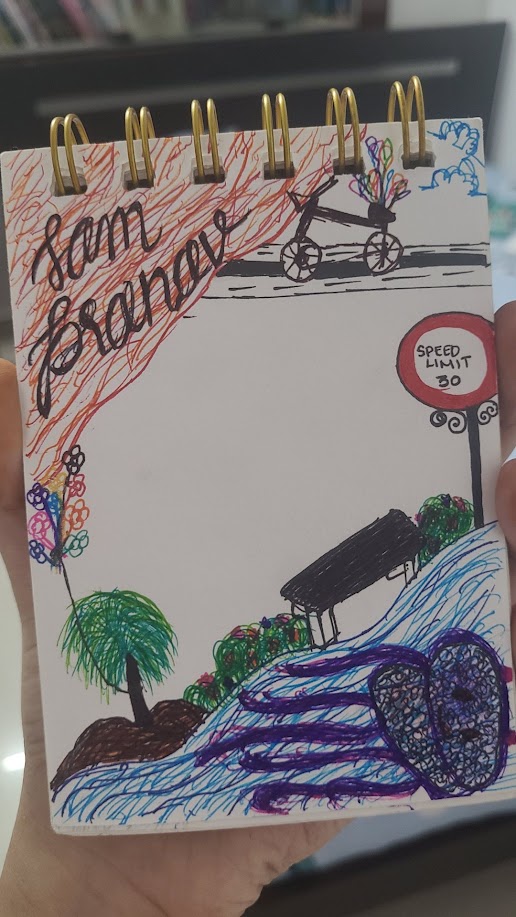 Sam
Pranav
SPEED
LIMIT
30